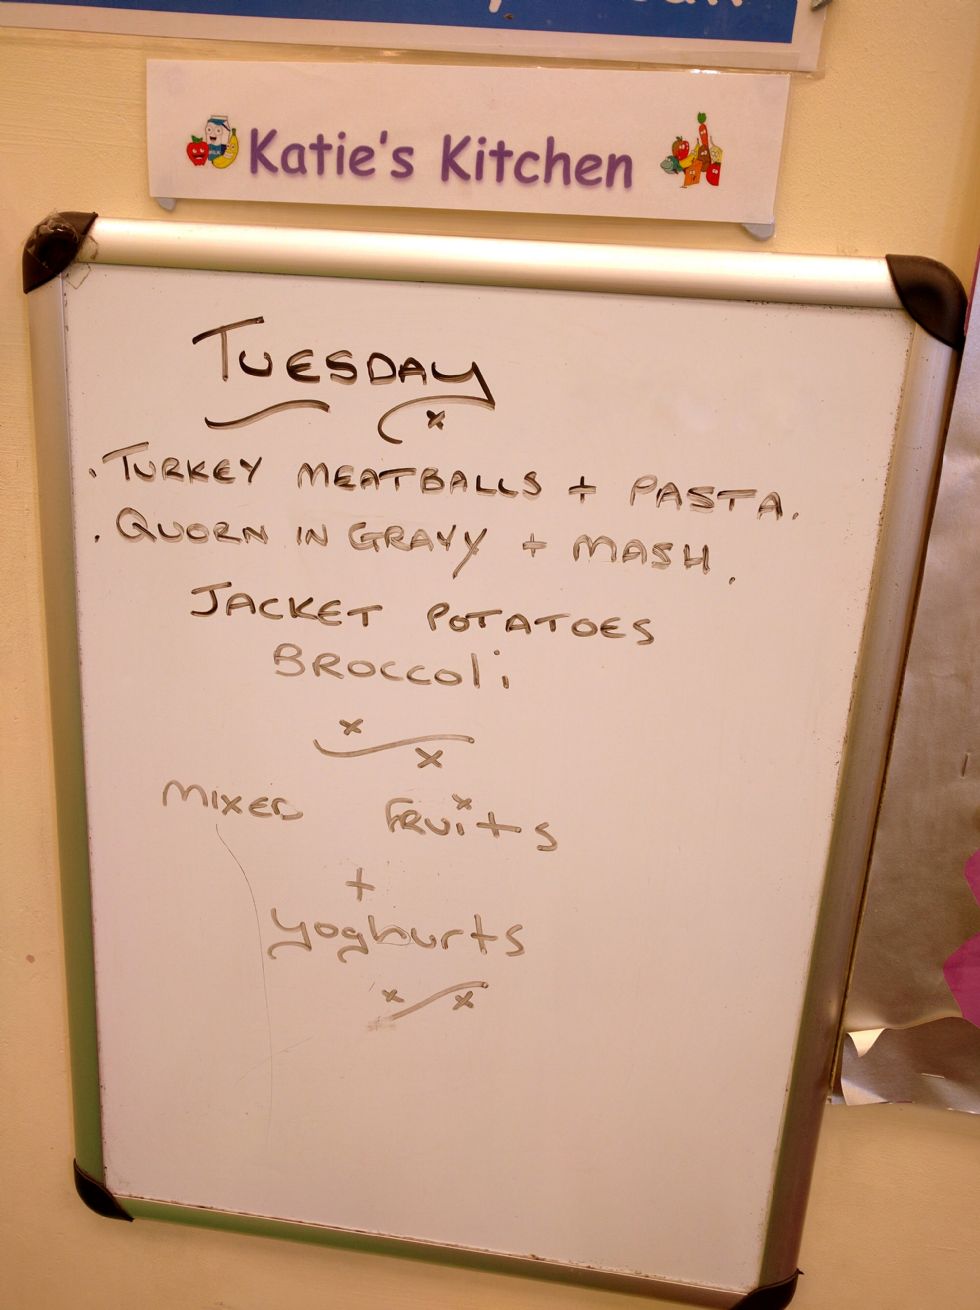 Katie's Kitchen
TUESDAY
. TURKEY MEATBALLS + PASTA.
. QUORN IN GRAVY + MASH.
JACKET POTATOES
BROCCOLi
MIXED FRUiTS
+
yoghurts